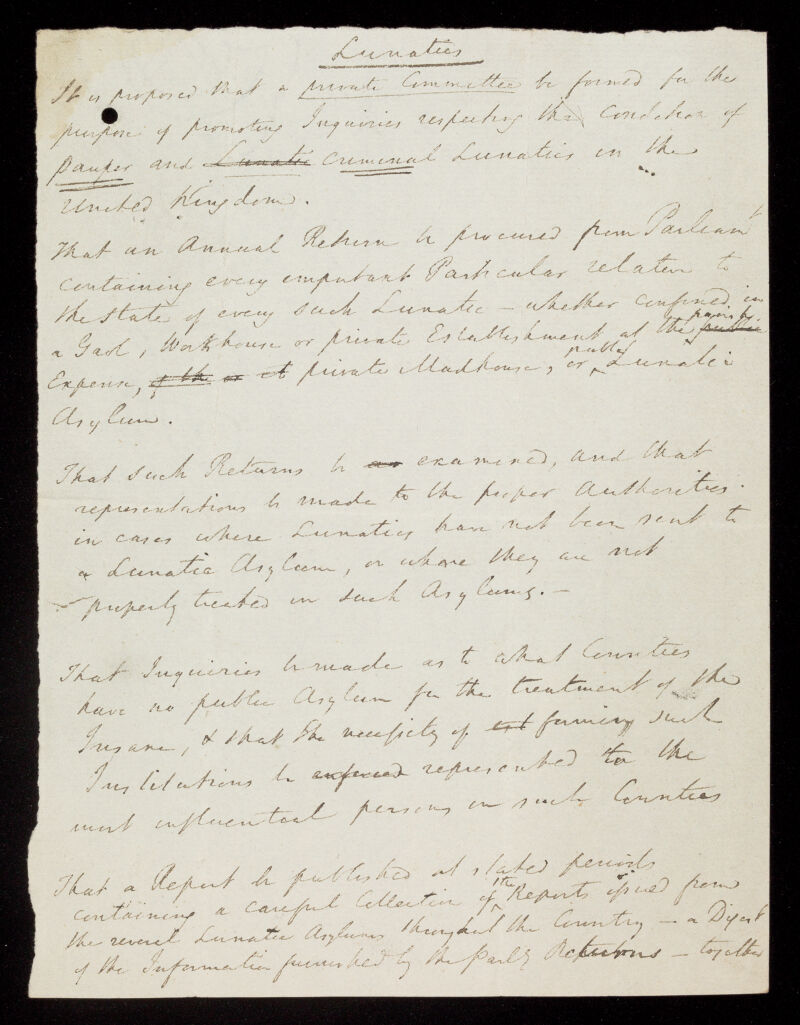 Lunatics
It is proposed that a private Committee be formed for the
purpose of promoting Inquiries respecting the condition of
Pauper and Lunatic criminal Lunatics in the
United Kingdom.
That an Annual Return be procured from Parliamt
containing every important Particular relative to
the State of every such Lunatic – whether confined in
a Gaol, Workhouse or private Establishment at the public parish
Expense, of the or at private Madhouse, or public Lunatic
Asylum.
That such Returns be an examined, and that
representations be made to the proper Authorities
in cases where Lunatics have not been sent to
a Lunatic Asylum, or where they are not
properly treated in such Asylums. –
That Inquiries be made as to what Counties
have no public Asylum for the treatment of the
Insane, & that the necessity of est forming such
Institutions be enforced represented to the
most influential persons in such Counties
That a Report be published at stated periods
containing a careful Collection of the Reports issued from
the several Lunatic Asylums throughout the Country – a Digest
of the Information furnished by the Parly Returns – together